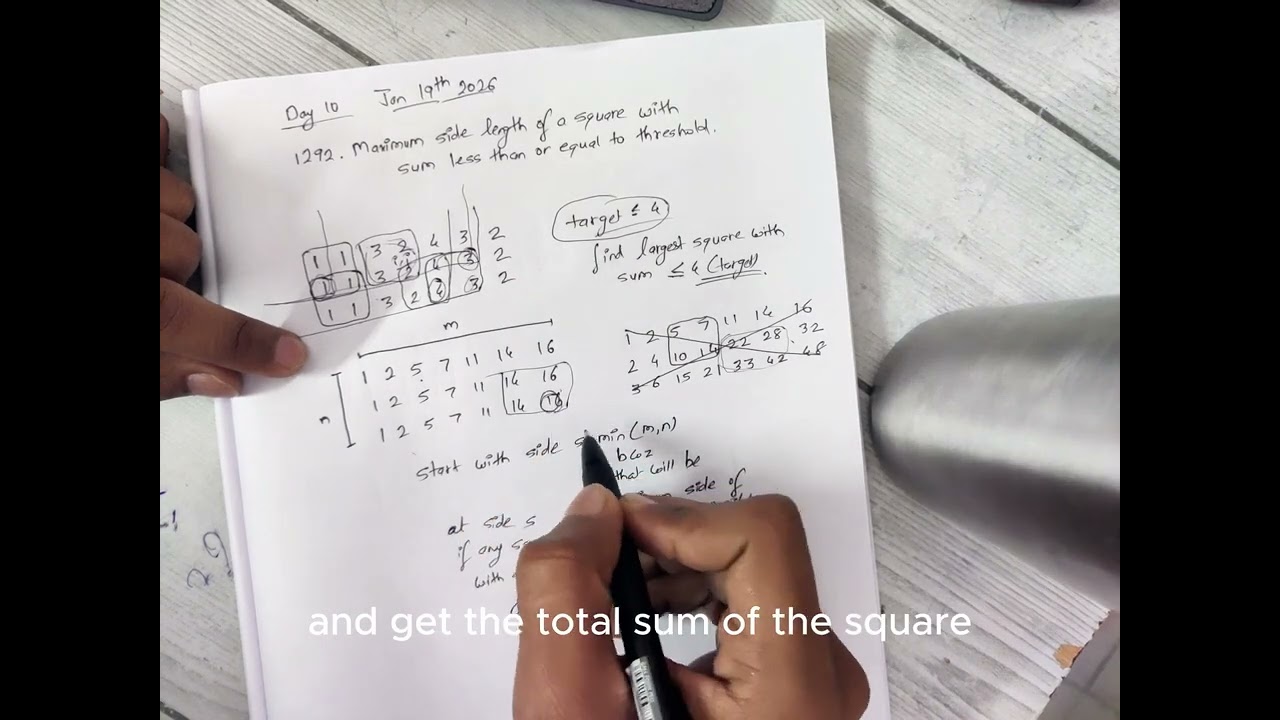 Day 10 Jan 19th 2026
1292. Maximum side length of a square with
sum less than or equal to threshold.
1 1 3 2 4 3 2
1 1 3 2 4 3 2
1 1 3 2 4 3 2
target ≤ 4
find largest square with
sum ≤ 4 (target).
m
n
1 2 5 7 11 14 16
1 2 5 7 11 14 16
1 2 5 7 11 14 16
1 2 5 7 11 14 16
2 4 10 14 22 28 32
3 6 15 21 33 42 48
start with side s min(m,n)
bcoz
that will be
side of
at side s
if any
with
and get the total sum of the square